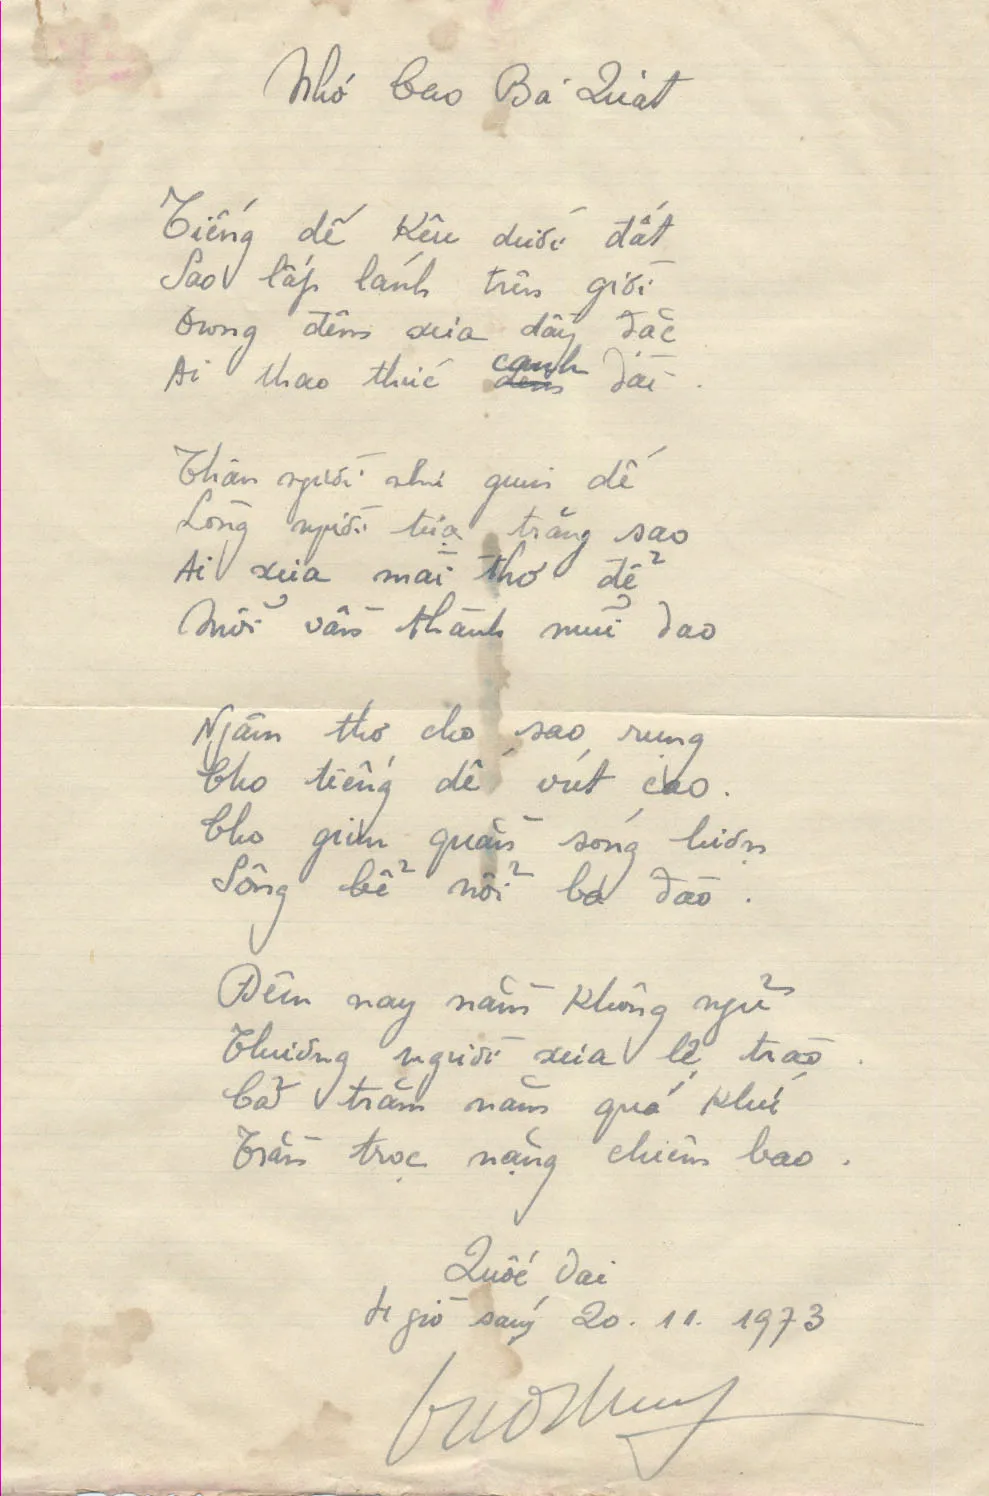 Nhớ Cao Bá Quát
Tiếng dế kêu dưới đất
Sao lấp lánh trên giời
Trong đêm xưa dầy đặc
Ai thao thức canh dài.
Thân người như giun dế
Lòng người tựa trăng sao
Ai xưa mài thơ để
Mỗi vần thành mũi dao
Ngâm thơ cho sao rụng
Cho tiếng dế vút cao.
Cho giun quằn sóng lượn
Sông bể nổi ba đào.
Đêm nay nằm không ngủ
Thương người xưa lệ trào.
Cả trăm năm quá khứ
Trằn trọc nặng chiêm bao.
Quốc Oai
giờ sáng 20. 11. 1973